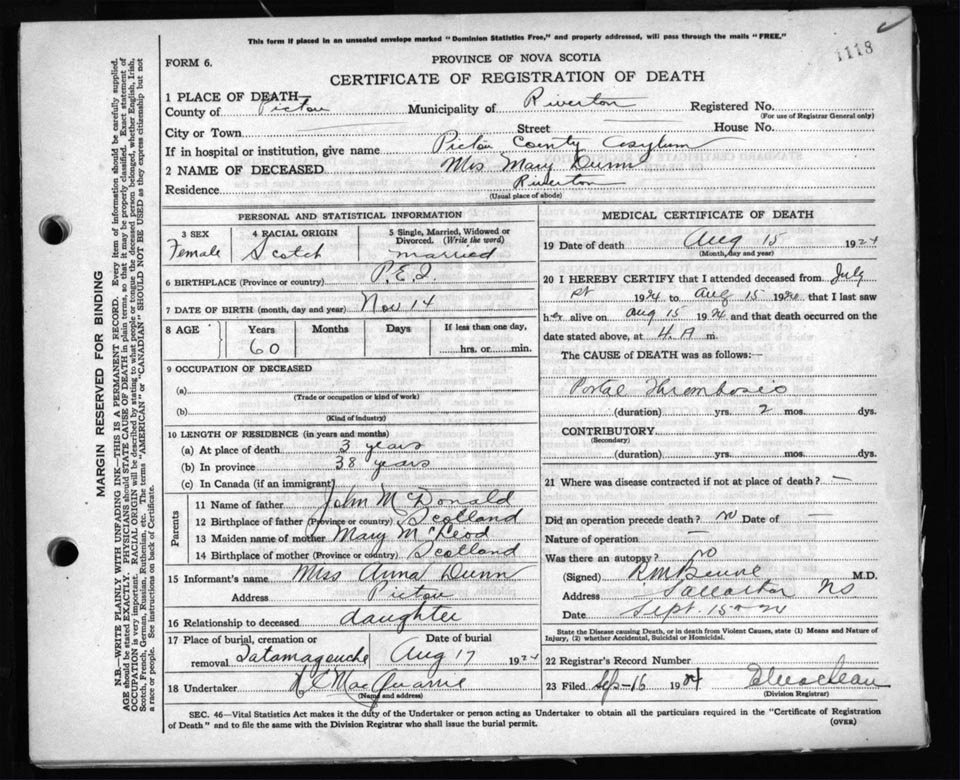 This form if placed in an unsealed envelope marked "Dominion Statistics Free," and properly addressed, will pass through the mails "FREE."
1118
FORM 6.
PROVINCE OF NOVA SCOTIA
CERTIFICATE OF REGISTRATION OF DEATH
1 PLACE OF DEATH—
County of Pictou Municipality of Riverton Registered No.
(For use of Registrar General only)
City or Town Street House No.
If in hospital or institution, give name Pictou County Asylum
2 NAME OF DECEASED Mrs Mary Dunn
Residence Riverton
(Usual place of abode)
PERSONAL AND STATISTICAL INFORMATION
3 SEX 4 RACIAL ORIGIN 5 Single, Married, Widowed or Divorced. (Write the word)
Female Scotch married
6 BIRTHPLACE (Province or country) P.E.I.
7 DATE OF BIRTH (month, day and year) Nov 14
8 AGE Years Months Days If less than one day,
60 hrs. or min.
9 OCCUPATION OF DECEASED
(a)
(Trade or occupation or kind of work)
(b)
(Kind of industry)
10 LENGTH OF RESIDENCE (in years and months)
(a) At place of death 3 years
(b) In province 38 years
(c) In Canada (if an immigrant)
Parents
11 Name of father John McDonald
12 Birthplace of father (Province or country) Scotland
13 Maiden name of mother Mary McLeod
14 Birthplace of mother (Province or country) Scotland
15 Informant's name Miss Anna Dunn
Address Pictou
16 Relationship to deceased daughter
17 Place of burial, cremation or Date of burial
removal Tatamagouche Aug 17 1924
18 Undertaker MacQuarrie
(Name and address)
MEDICAL CERTIFICATE OF DEATH
19 Date of death Aug 15 1924
(Month, day and year)
20 I HEREBY CERTIFY that I attended deceased from July
1924 to Aug 15 1924 that I last saw
her alive on Aug 15 1924 and that death occurred on the
date stated above, at 4. A m.
The CAUSE of DEATH was as follows:—
Portal Thrombosis
(duration) yrs. 2 mos. dys.
CONTRIBUTORY
(Secondary)
(duration) yrs. mos. dys.
21 Where was disease contracted if not at place of death? —
Did an operation precede death? no Date of —
Nature of operation —
Was there an autopsy? no
(Signed) M.D.
Address NS
Date Sept. 15 24
State the Disease causing Death, or in death from Violent Causes, state (1) Means and Nature of
Injury, (2) whether Accidental, Suicidal or Homicidal.
22 Registrar's Record Number
23 Filed Sep-16 1924
(Division Registrar)
SEC. 46—Vital Statistics Act makes it the duty of the Undertaker or person acting as Undertaker to obtain all the particulars required in the "Certificate of Registration
of Death" and to file the same with the Division Registrar who shall issue the burial permit. (OVER)
MARGIN RESERVED FOR BINDING
N.B.—WRITE PLAINLY WITH UNFADING INK—THIS IS A PERMANENT RECORD. Every item of information should be carefully supplied.
AGE should be stated EXACTLY. PHYSICIANS should STATE CAUSE OF DEATH in plain terms, so that it may be properly classified. Exact statement of
OCCUPATION is very important. RACIAL ORIGIN will be described by stating to what people or tongue the deceased person belonged, whether English, Irish,
Scotch, French, German, Russian, Ruthenian, etc. The terms "AMERICAN" or "CANADIAN" SHOULD NOT BE USED as they express citizenship but not
a race or people. See instructions on back of Certificate.